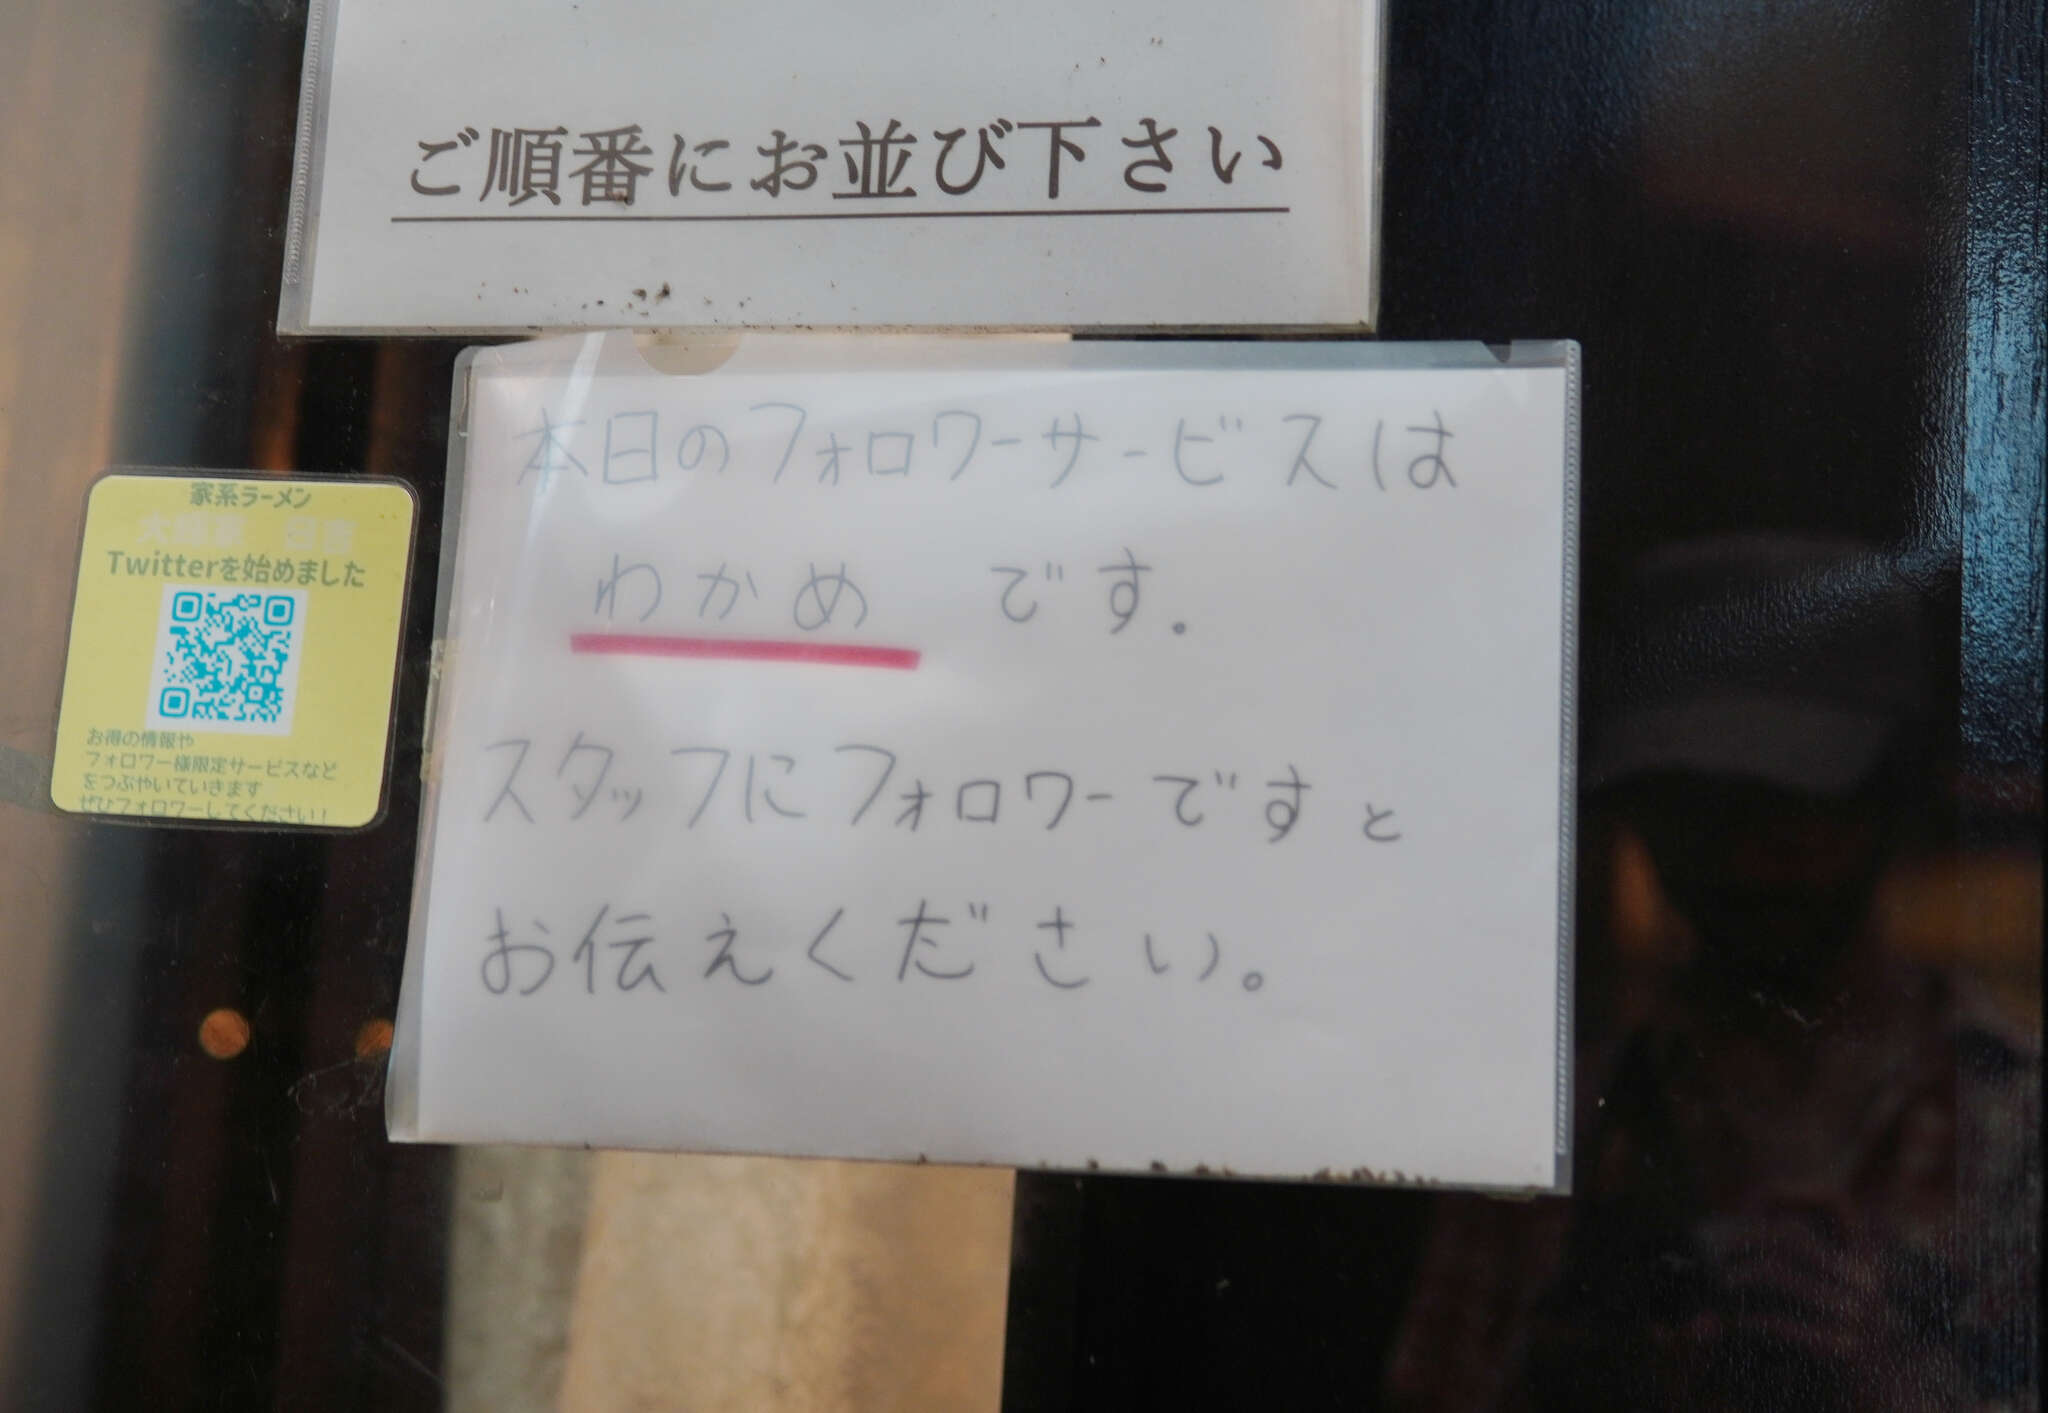 ご順番にお並び下さい
本日のフォロワーサービスは
わかめ です.
スタッフにフォロワーですと
お伝えください。
家系ラーメン
Twitterを始めました
お得の情報や
フォロワー様限定サービスなど
をつぶやいていきます
ぜひフォロワーしてください!